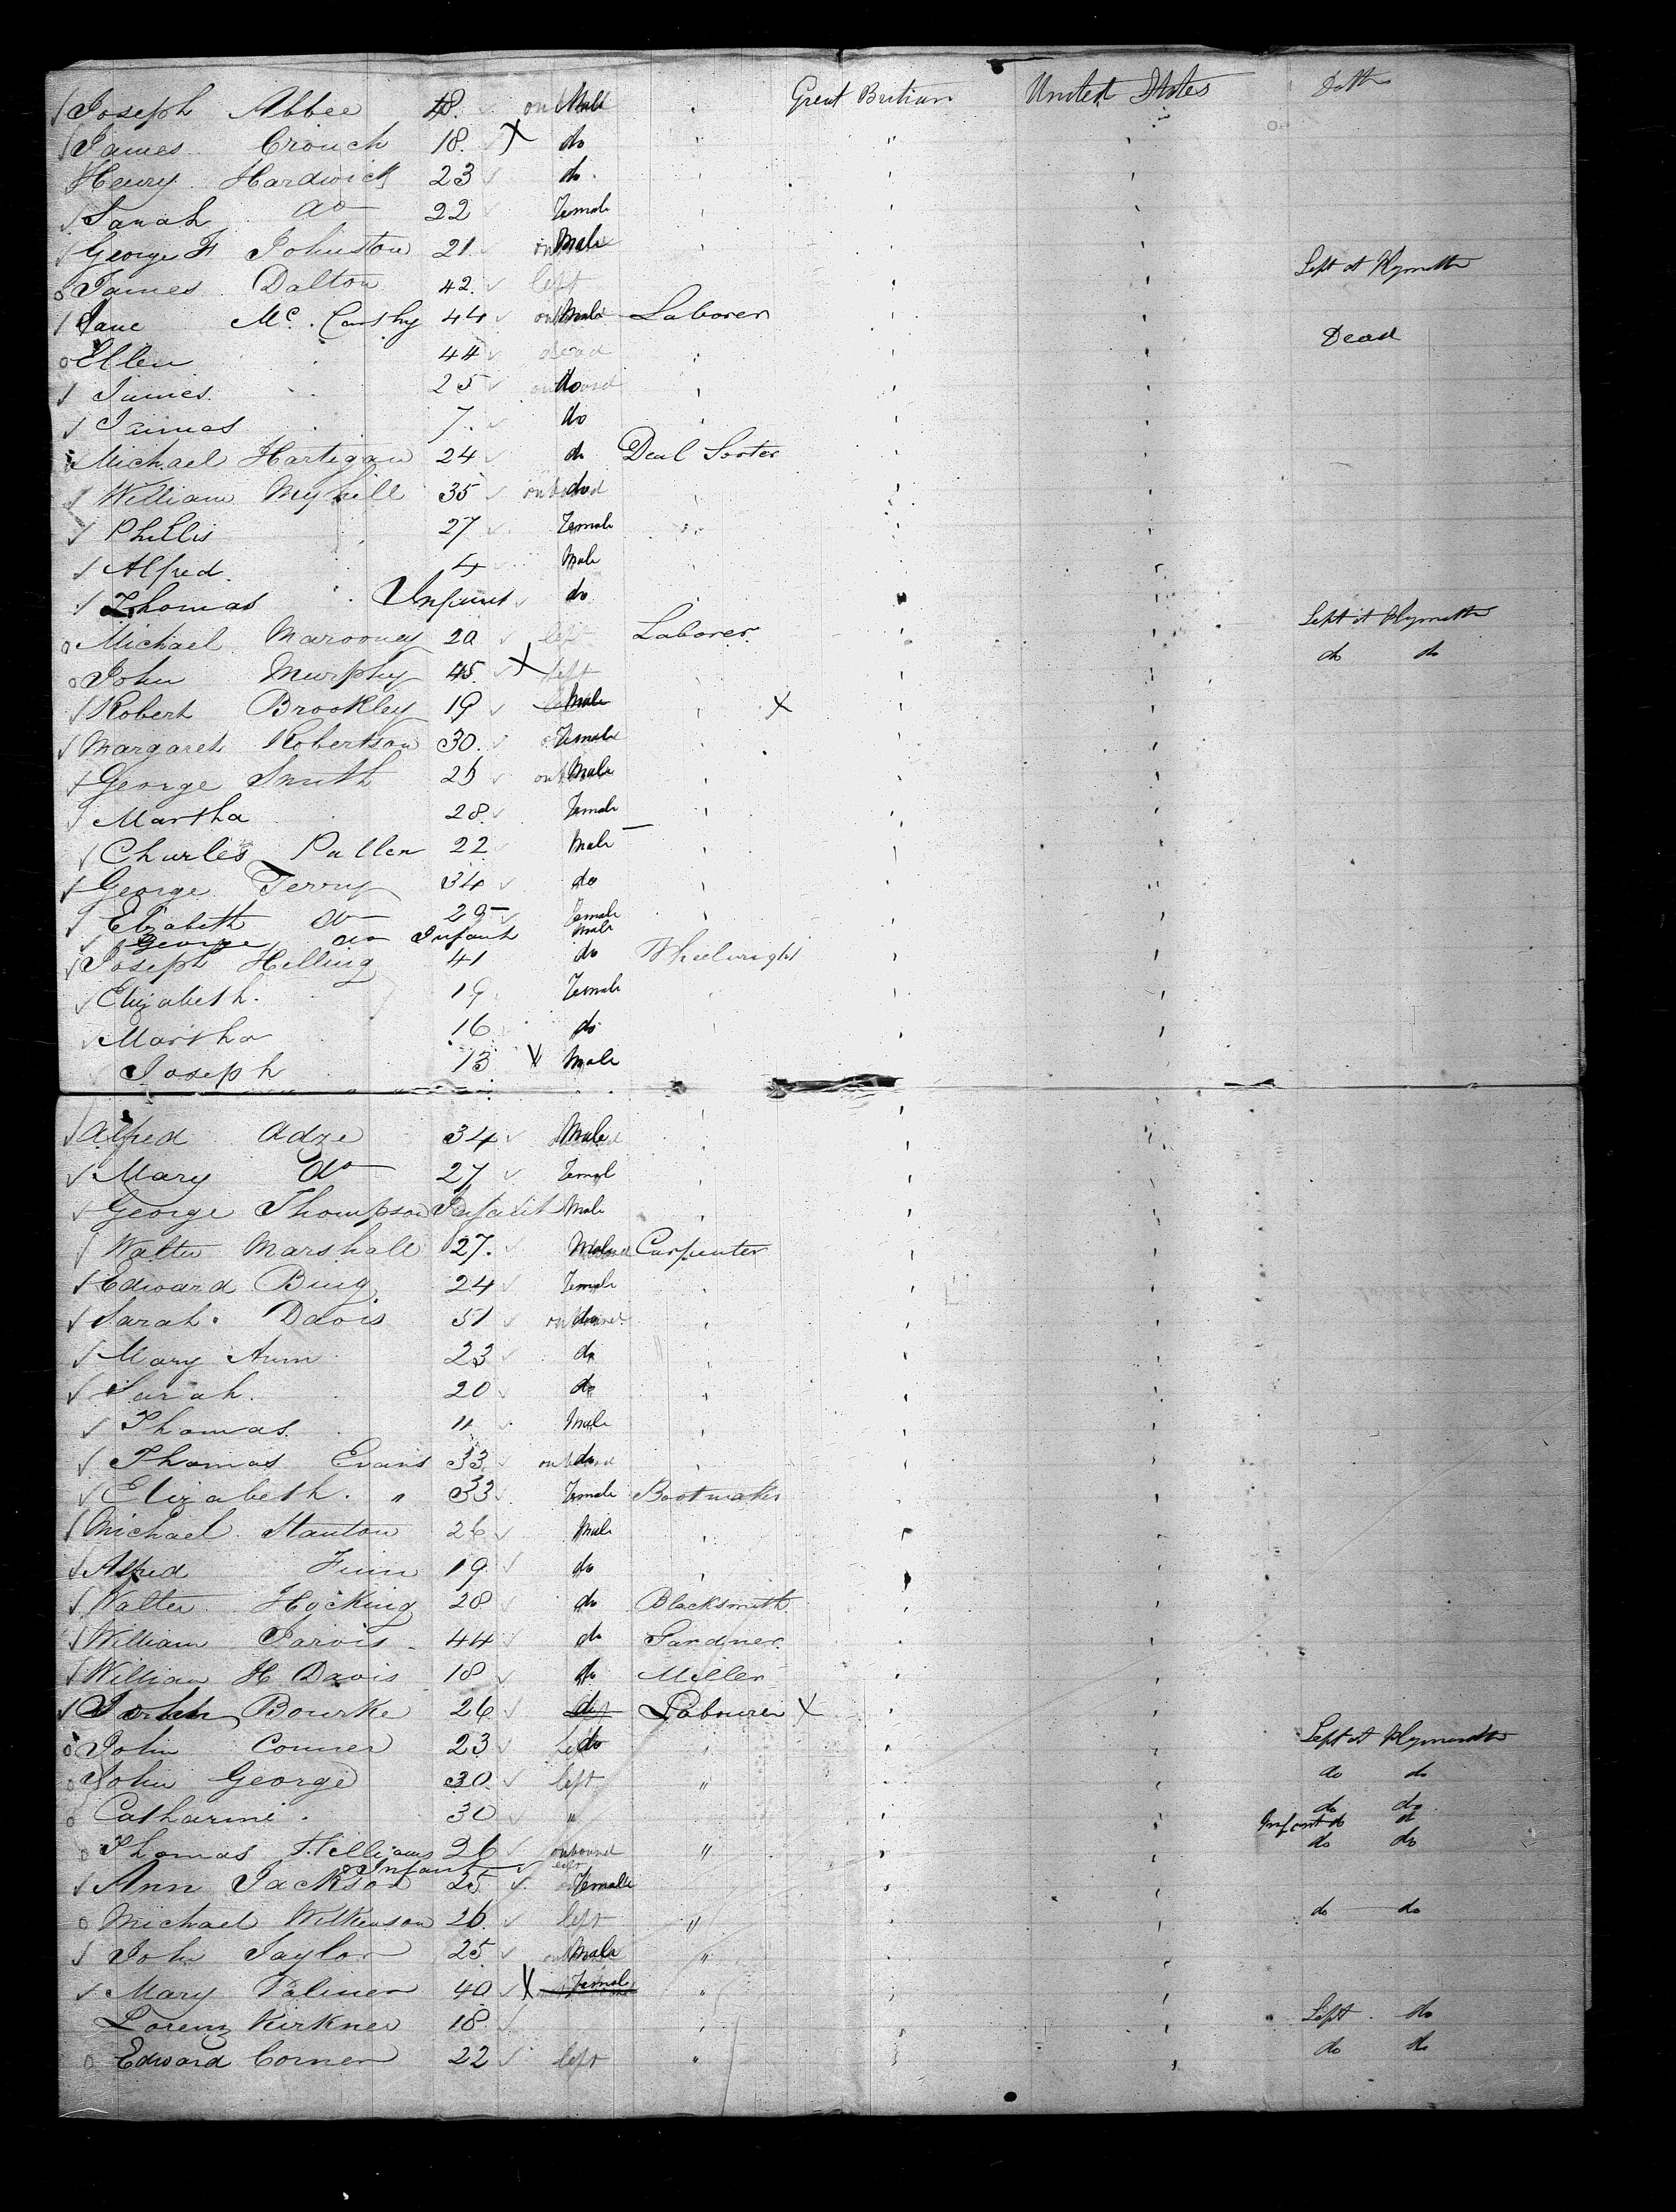 Joseph Abbee 18 Male Great Britian United States Do th
James Crouch 18 do
Henry Hardwick 23 do
Sarah do 22 Female
George F Johnston 21 Male
James Dalton 42 left Left at Plymouth
Jane Mc. Carthy 44 Male Laborer
Ellen 44 dead Dead
James 25 do
James 7 do
Michael Hartigan 24 do Deal Sorter
William Myhill 35 do
Phillis 27 Female
Alfred 4 Male
Thomas Infant do
Michael Marooney 20 left Laborer Left at Plymouth
John Murphy 45 left do do
Robert Brookley 19 Male
Margaret Robertson 30 Female
George Smith 25 Male
Martha 28 Female
Charles Pallen 22 Male
George Terry 34 do
Elizabeth do 29 Female
George do Infant Male
Joseph Helling 41 do Wheelwright
Elizabeth 19 Female
Martha 16 do
Joseph 13 Male
Alfred Adze 34 Male
Mary do 27 Femal
George Thompson Infant Male
Walter Marshall 27 Male Carpenter
Edward Bing 24 Female
Sarah Davis 51 do
Mary Ann 23 do
Sarah 20 do
Thomas 11 Male
Thomas Evans 33 do
Elizabeth " 33 Female Bootmaker
Michael Stanton 26 Male
Alfred Finn 19 do
Walter Hocking 28 do Blacksmith
William Jarvis 44 do Gardner
William H Davis 18 do Miller
John Bourke 26 do Labourer
John Conner 23 do Left at Plymouth
John George 30 left " do do
Catharine 30 " do do
Infant do do
Thomas 26 onboard " do do
Infant
Ann Jackson 25 Female
Michael Wilkinson 26 left " do do
John Taylor 25 Male "
Mary Palmer 40 Female "
Lorenz Kirkner 18 Left do
Edward Corner 22 left " do do